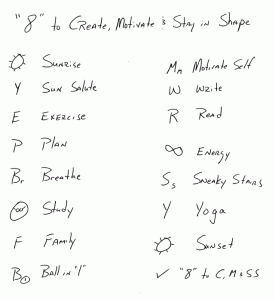 "8" to Create, Motivate & Stay in Shape
Sunrise
Y Sun Salute
E Exercise
P Plan
Br Breathe
Study
F Family
B1 Ball in "1"
Mm Motivate Self
W Write
R Read
∞ Energy
Ss Sneaky Stairs
Y Yoga
Sunset
✓ "8" to C, M & SS